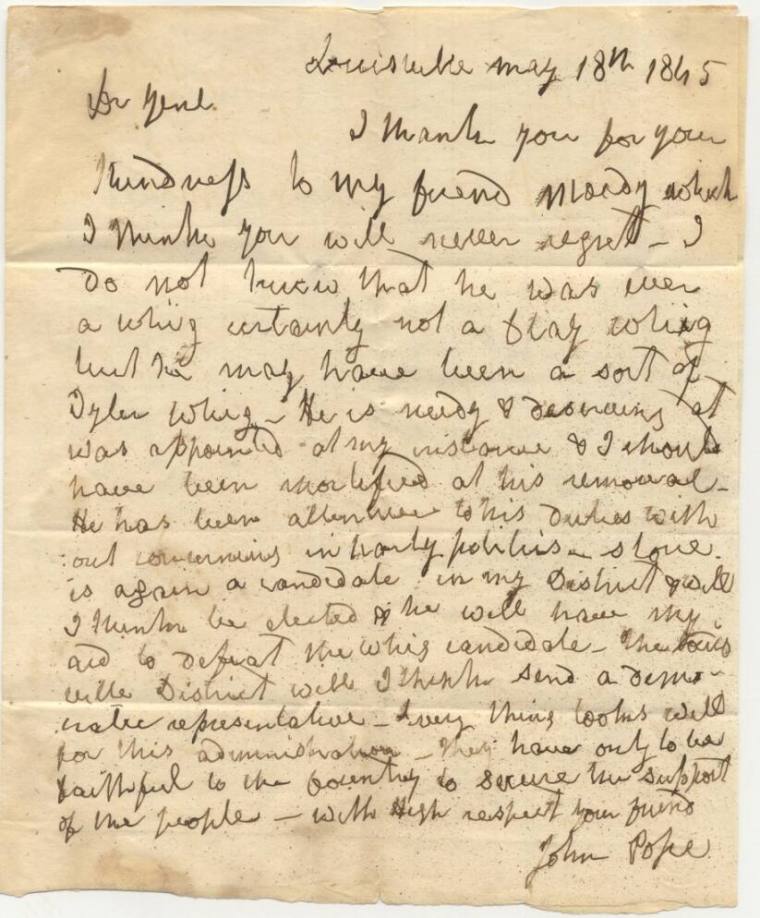 Louisville may 18th 1845
Dr Genl.
I thank you for your
kindness to my friend Moody which
I think you will never regret - I
do not know that he was ever
a whig certainly not a Clay whig
but he may have been a sort of
Tyler whig - He is needy & deserving
was appointed at my instance & I should
have been mortified at his removal -
He has been attentive to his duties with
out concerning in party politics - Stone
is again a candidate in my District & will
I think be elected & he will have my
aid to defeat the whig candidate - The Louis
ville District will I think send a demo-
cratic representative - Every thing looks well
for this administration - They have only to be
faithful to the Country to secure the support
of the people - with High respect your friend
John Pope